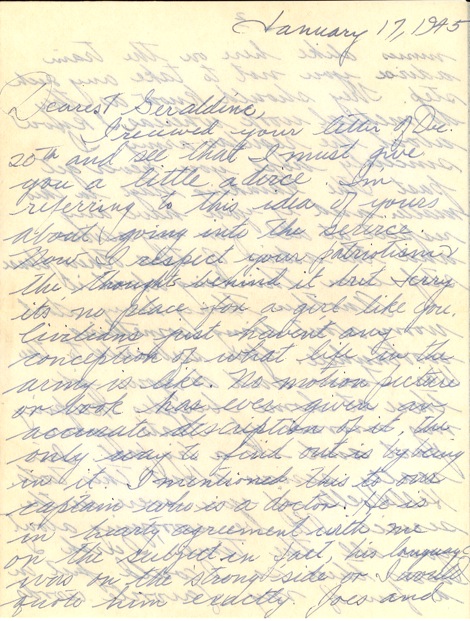 January 17, 1945
Dearest Geraldine,
I received your letter of Dec.
20th and see that I must give
you a little advice. I'm
referring to this idea of yours
about going into the service.
Now I respect your patriotism &
the thoughts behind it but Jerry
its no place for a girl like you.
Civilians just havent any
conception of what life in the
army is like. No motion picture
or book has ever given an
accurate description of it, the
only way to find out is by being
in it. I mentioned this to our
captain who is a doctor. He is
in hearty agreement with me
on the subject in fact, his language
was on the strong side or I would
quote him exactly. Joes and